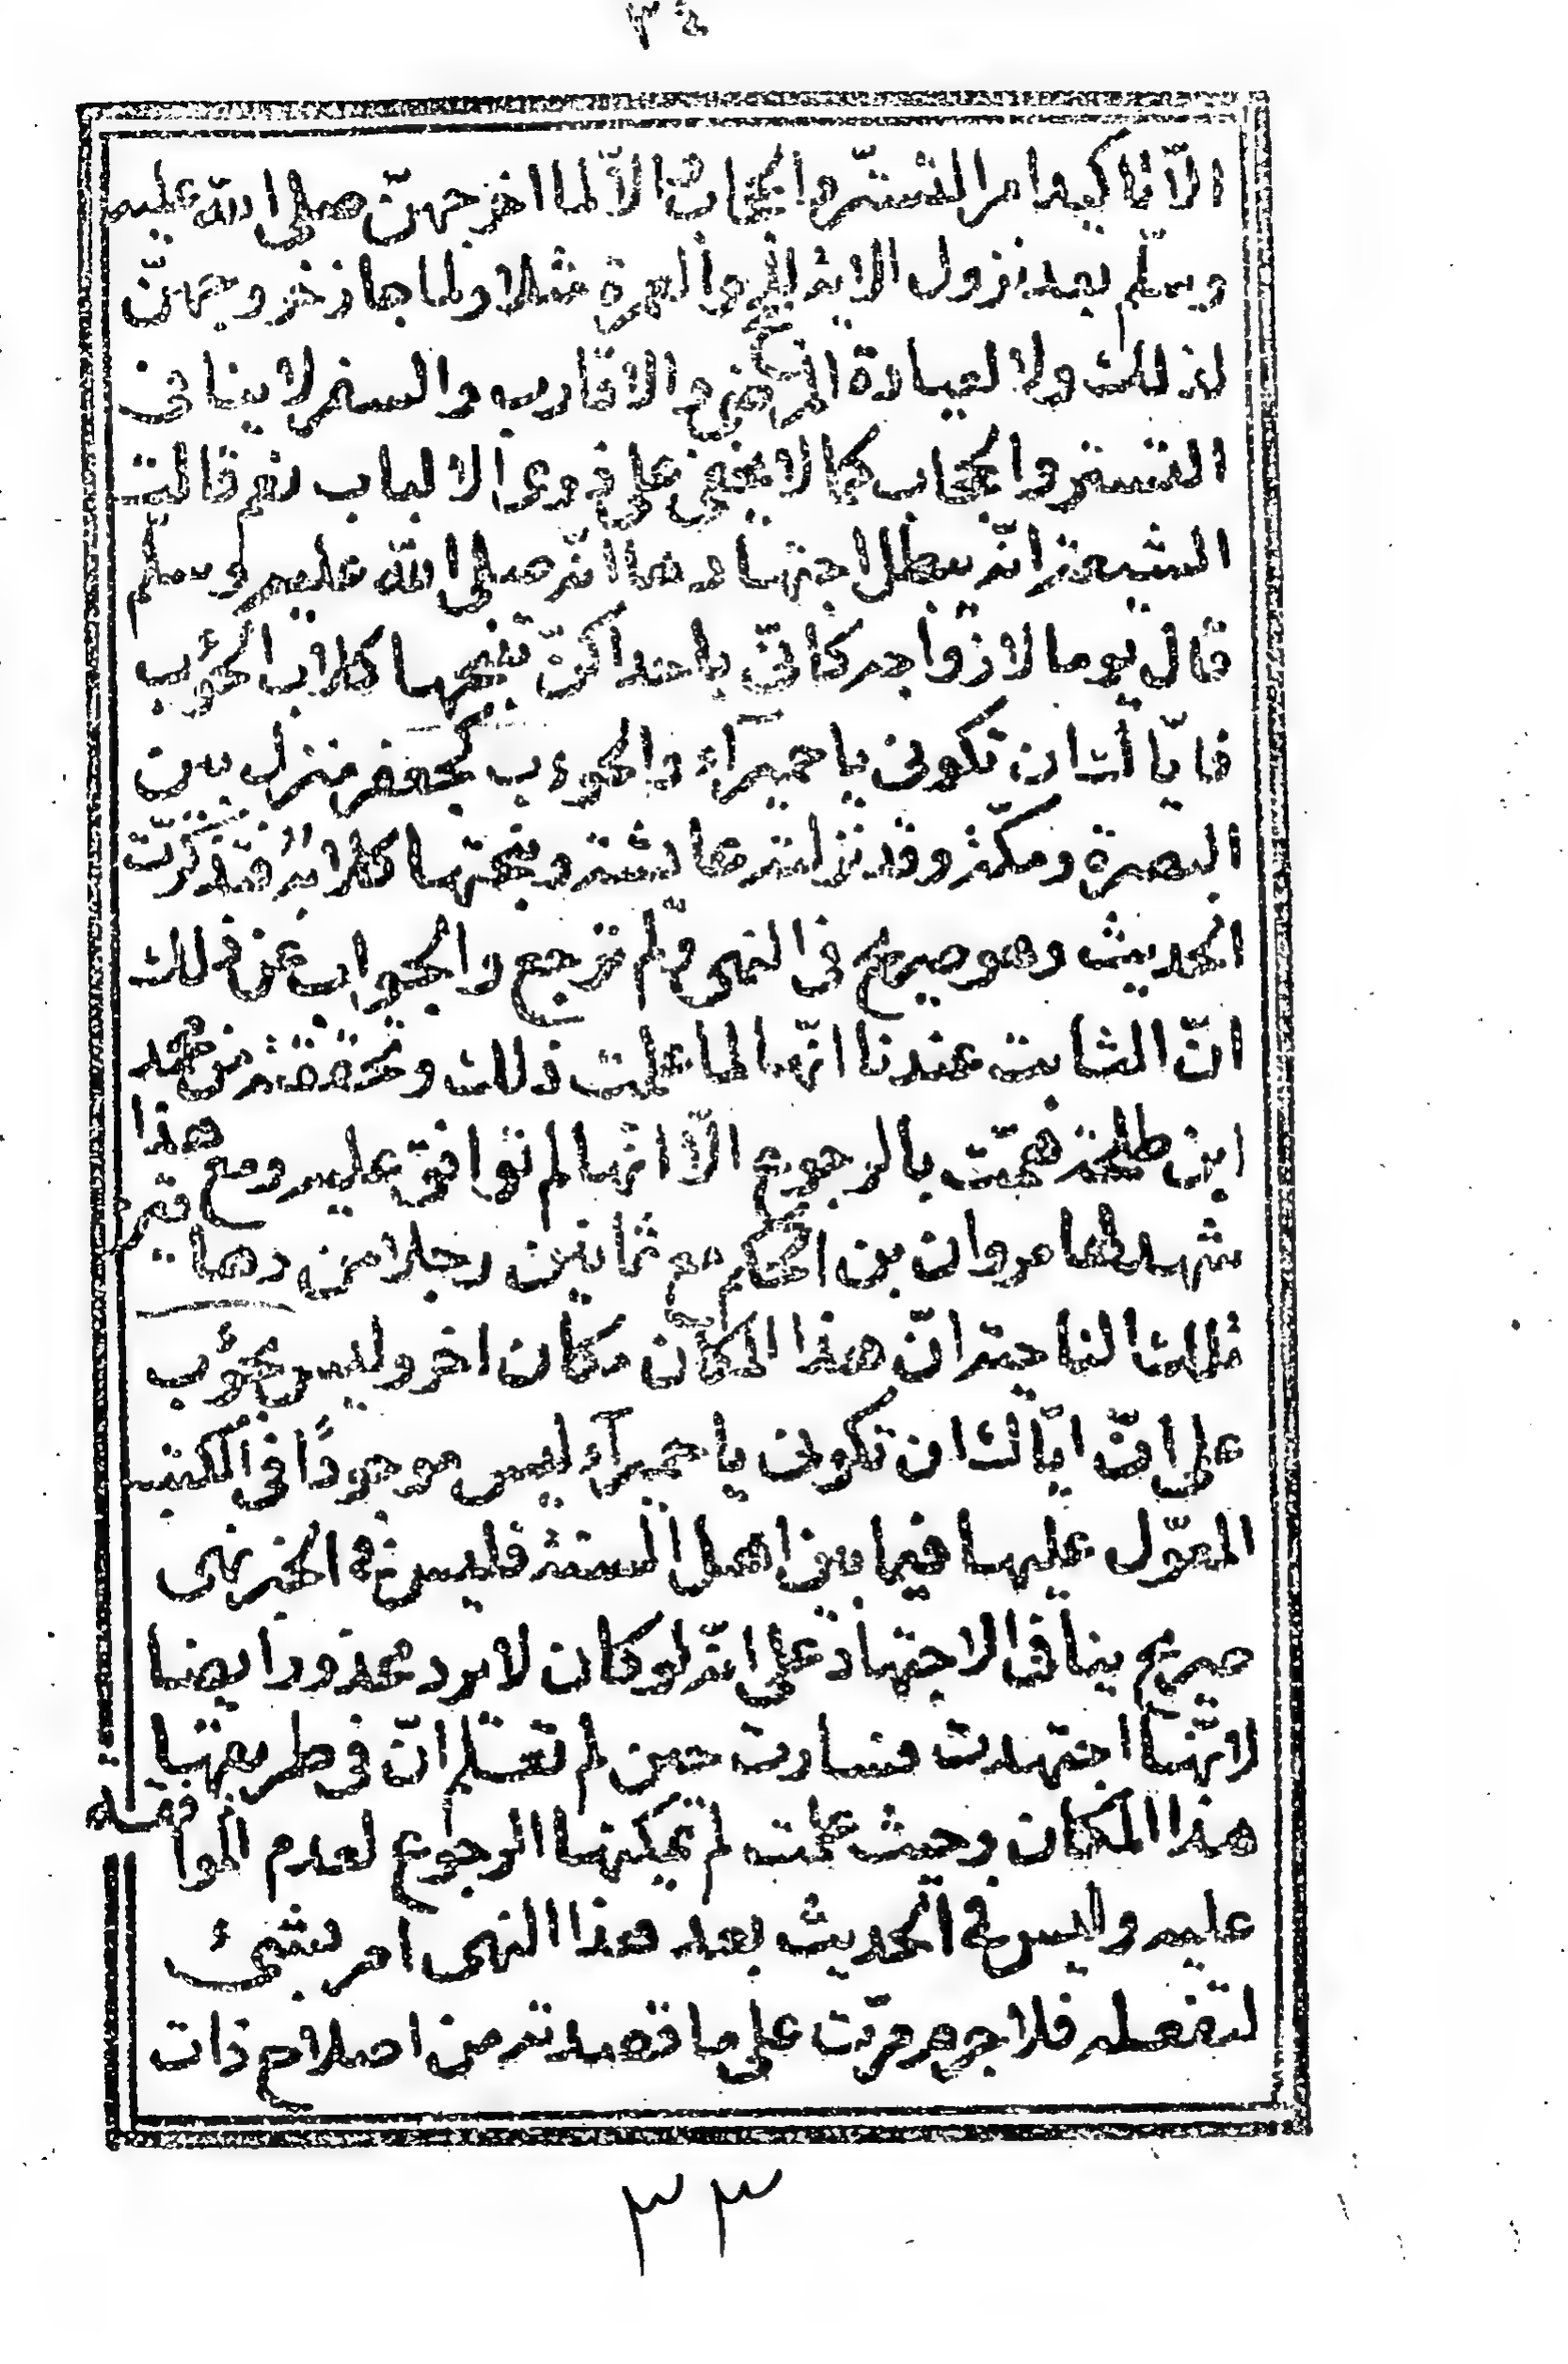 ٣٤
الا تاكيد امر التستر والحجاب والا لما اخرجهنّ صلى الله عليه
وسلّم بعد نزول الاية للحج والعمرة مثلا ولما جاز خروجهنّ
لذلك ولا لعيادة المرضى والاقارب والسفر لا ينافى
التستر والحجاب كما لا يخفى على ذوى الالباب نعم قالت
الشيعة انّه يبطل اجتهادها انّه صلى الله عليه وسلم
قال يوما لازواجه كانّى باحداكنّ تنبحها كلاب الحوئب
فايّاك ان تكونى يا حميرآء والحوءب كجعفر منزل بين
البصرة ومكّة وقد نزلته عائشة ونبحتها كلابه فتذكرت
الحديث وهو صريح فى النهى ولم ترجع والجواب عن ذلك
انّ الثابت عندنا انّها لما علمت ذلك وتحققته من محمد
ابن طلحة همّت بالرجوع الّا انّها لم توافق عليه ومع هذا
شهد لها مروان بن الحكم مع ثمانين رجلا من دهاقين
تلك الناحية انّ هذا المكان مكان اخر وليس بحوئب
على انّ ايّاك ان تكونى يا حميرآء ليس موجودًا فى الكتب
المعوّل عليها فيما بين اهل السنة فليس فى الخبر نهى
صريح ينافى الاجتهاد على انّه لو كان لا يرد محذور ايضا
لانّها اجتهدت فسارت حين لم تعلم انّ فى طريقها
هذا المكان وحيث علمت لم يمكنها الرجوع لعدم الموافقة
عليه وليس فى الحديث بعد هذا النهى امر بشىء
لتفعله فلا جرم مرّت على ما قصدته من اصلاح ذات
٣٣